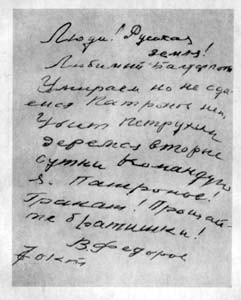 Люди! Русская
земля!
Любимый Балтфлот
Умираем но не сда-
емся Патронов нет
Убит Петрухин
деремся вторые
сутки Командую
я. Патронов!
Гранат! Прощай-
те братишки!
В Федоров
7 окт